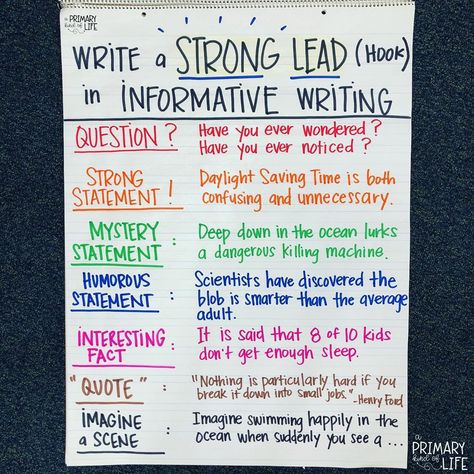 a
PRIMARY
kind of
LIFE
WRITE a STRONG LEAD (HOOK)
in INFORMATIVE WRITING
QUESTION ? Have you ever wondered ?
Have you ever noticed ?
STRONG
STATEMENT ! Daylight Saving Time is both
confusing and unnecessary.
MYSTERY
STATEMENT : Deep down in the ocean lurks
a dangerous killing machine.
HUMOROUS
STATEMENT : Scientists have discovered the
blob is smarter than the average
adult.
INTERESTING
FACT : It is said that 8 of 10 kids
don't get enough sleep.
"QUOTE" : "Nothing is particularly hard if you
break it down into small jobs."
-Henry Ford
IMAGINE
a SCENE : Imagine swimming happily in the
ocean when suddenly you see a ...
a
PRIMARY
kind of
LIFE